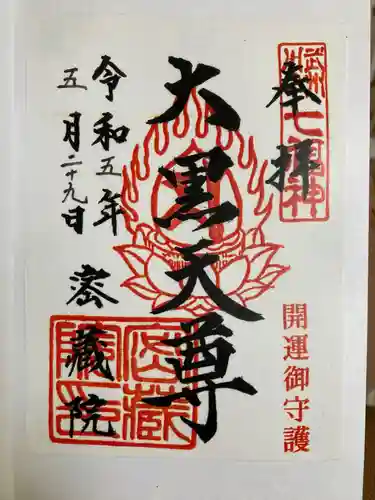 奉拝
武州
七福神
開運御守護
大黒天尊
令和五年
五月二十九日
密蔵院